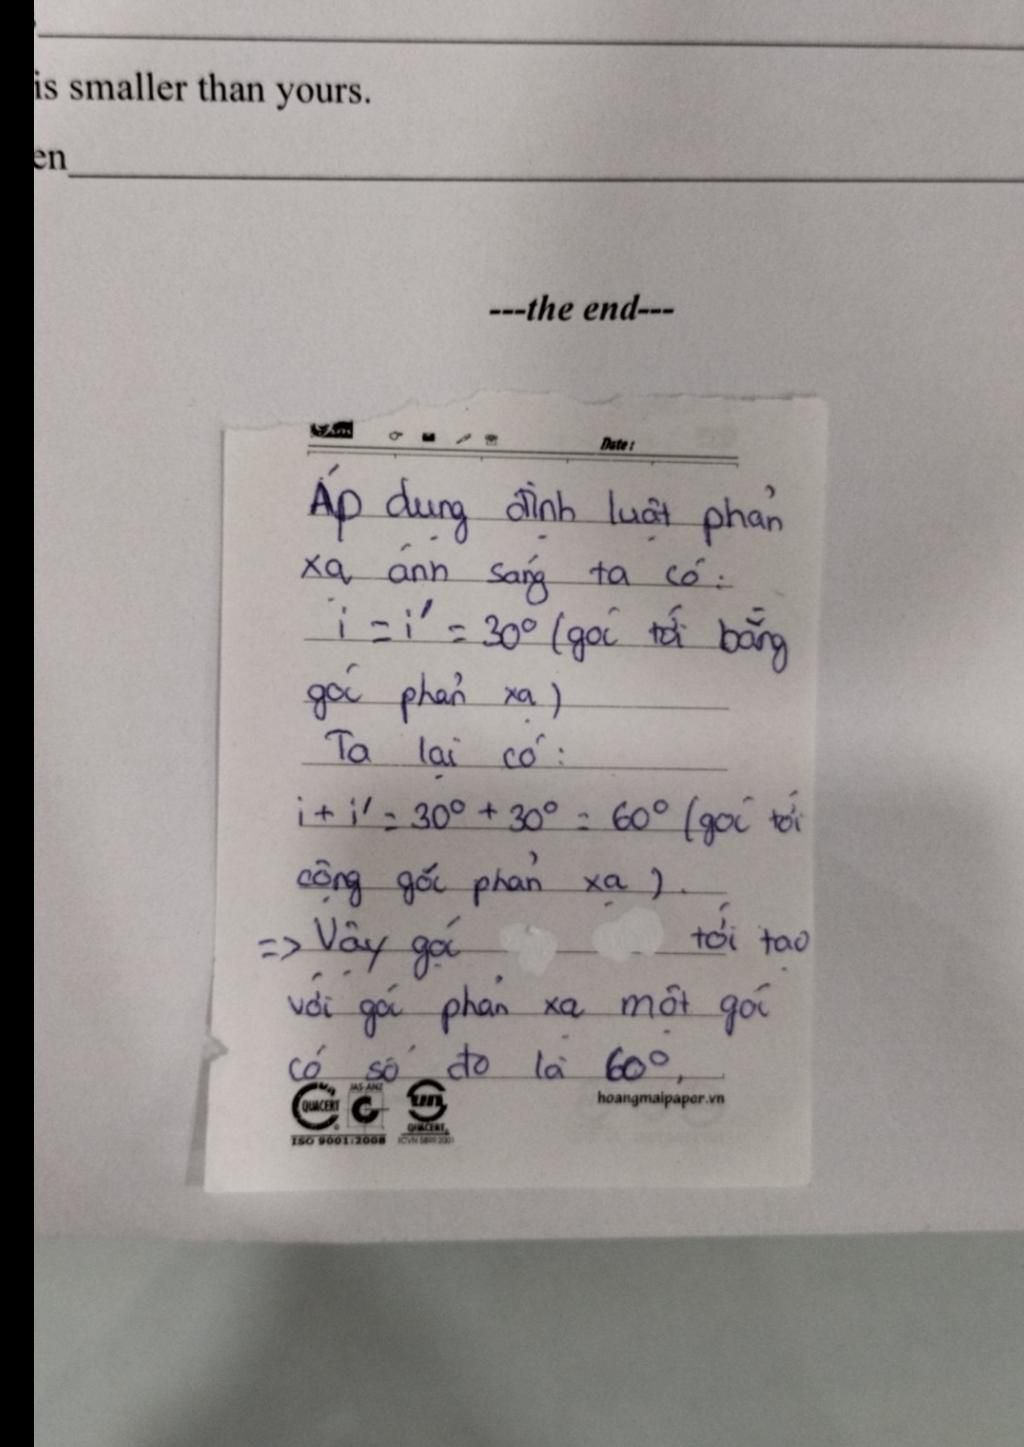 is smaller than yours.
en
---the end---
Date:
Áp dụng định luật phản
xạ ánh sáng ta có:
i = i' = 30° (góc tới bằng
góc phản xạ)
Ta lại có:
i + i' = 30° + 30° = 60° (góc tới
cộng góc phản xạ).
=> Vậy góc tới tạo
với góc phản xạ một góc
có số đo là 60°.
QUACERT JAS-ANZ QUACERT
hoangmaipaper.vn
ISO 9001:2008